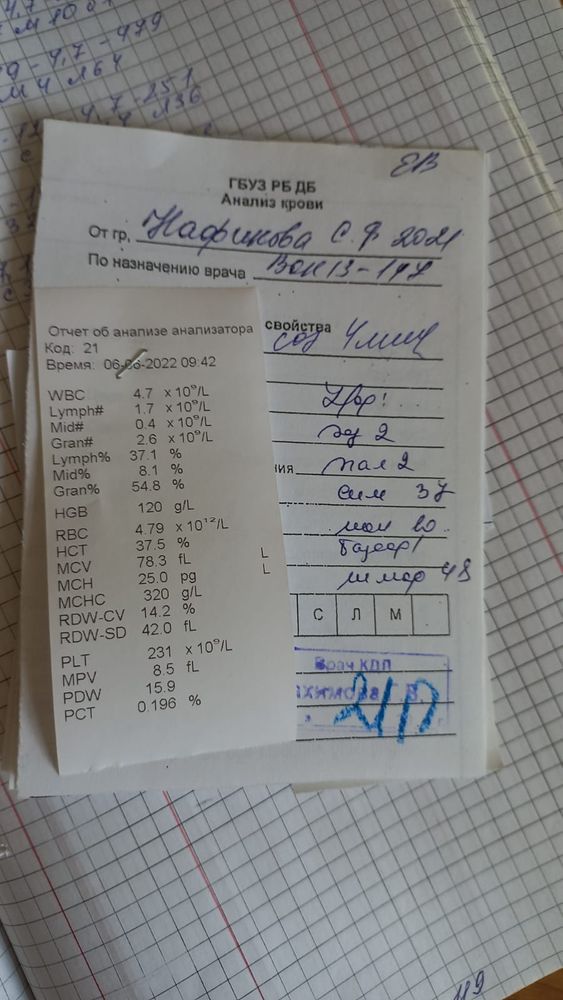 4,7 - 479
м 4 л 64
4,7 - 251
л 36
ЕВ
ГБУЗ РБ ДБ
Анализ крови
От гр. Нафикова С. Ф. 2021
По назначению врача ВОП 13-147
свойства
соэ 4 мм/ч
Отчет об анализе анализатора
Код: 21
Время: 06-06-2022 09:42
WBC 4.7 x 10⁹/L
Lymph# 1.7 x 10⁹/L
Mid# 0.4 x 10⁹/L
Gran# 2.6 x 10⁹/L
Lymph% 37.1 %
Mid% 8.1 %
Gran% 54.8 %
HGB 120 g/L
RBC 4.79 x 10¹²/L
HCT 37.5 %
MCV 78.3 fL L
MCH 25.0 pg L
MCHC 320 g/L
RDW-CV 14.2 %
RDW-SD 42.0 fL
PLT 231 x 10⁹/L
MPV 8.5 fL
PDW 15.9
PCT 0.196 %
эоз 2
ния пал 2
сим 37
мон 10
базоф 1
лимф 48
С Л М
Врач КДЛ